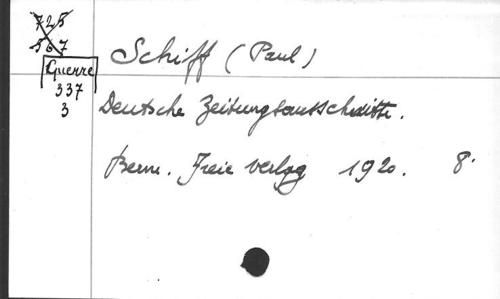 725
567
Guerre
337
3
Schiff (Paul)
Deutsche Zeitungsausschnitte.
Bern. Freie Verlag 1920. 8°